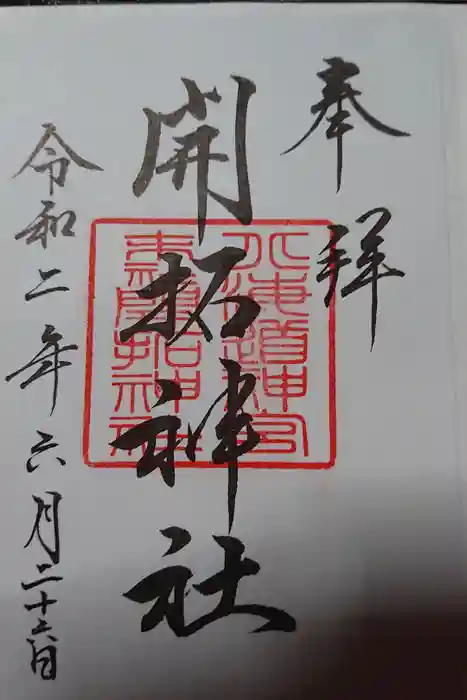 奉拝
開拓神社
北海道神宮
末社開拓神社
令和二年六月二十六日